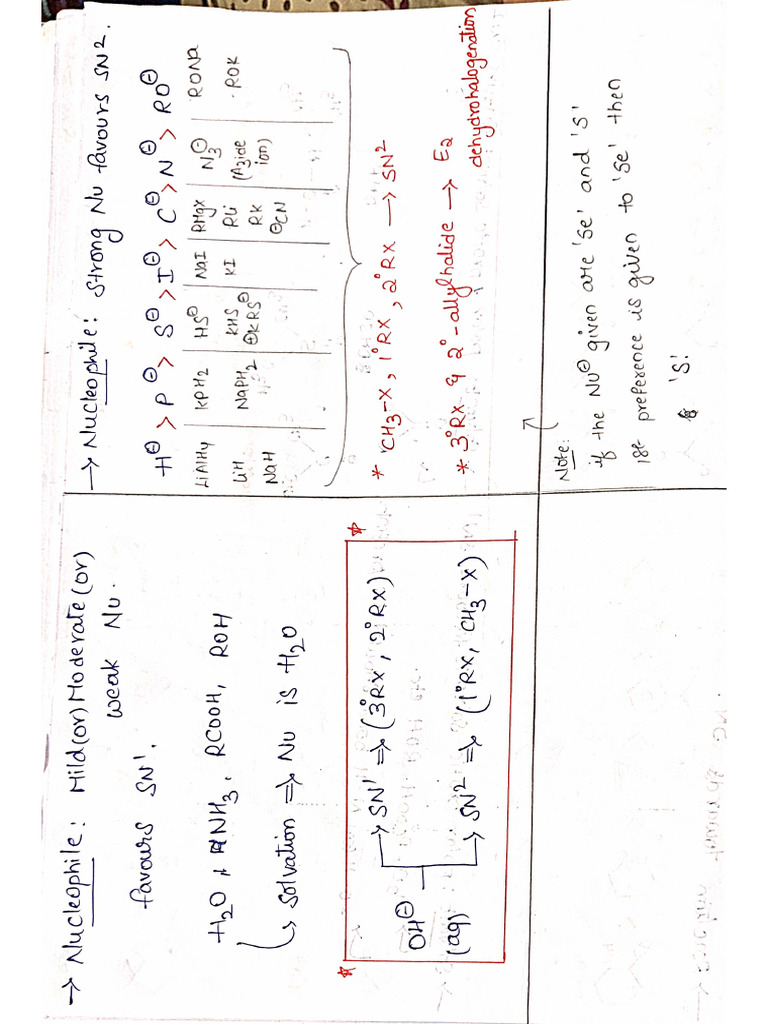 → Nucleophile: Mild(or) Moderate (or)
weak Nu.
favours SN¹.
H₂O, NH₃, RCOOH, ROH
↳ solvation ⇒ Nu is H₂O
OH⊖
(aq)
→ SN¹ ⇒ (3°RX, 2°RX)
→ SN² ⇒ (1°RX, CH₃-X)
→ Nucleophile: Strong Nu favours SN².
H⊖ > P⊖ > S⊖ > I⊖ > C⊖ > N⊖ > RO⊖
LiAlH4 | KPH2 | HS⊖ | NaI | RMgX | N₃⊖ | RONa
LiH | NaPH₂ | KHS | KI | RLi | (Azide | ROK
NaH | ⊕KRS⊖ | RK | ion)
⊖CN
* CH₃-X, 1°RX, 2°RX → SN²
* 3°RX & 2°-allylhalide → E₂
dehydrohalogenation
Note:
if the Nu⊖ given are 'se' and 's'
1st preference is given to 'se' then
's'.